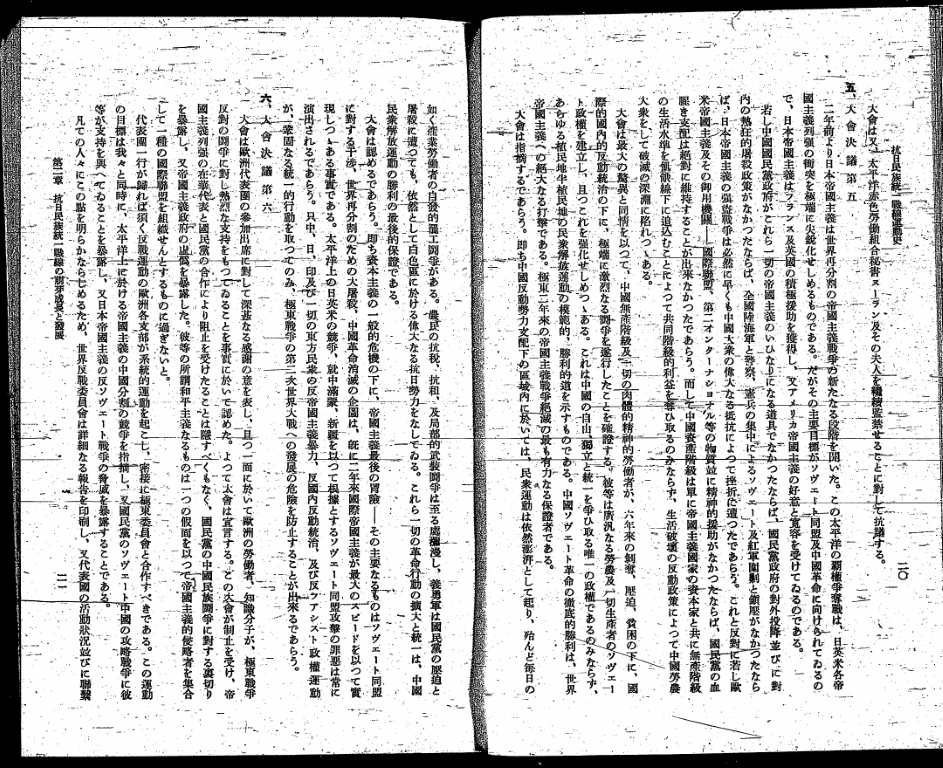 抗日民族統一戰線運動史
二〇
大會は又、太平洋赤色勞働組合秘書ヌーラン及その夫人を繼續監禁せることに對して抗議する。
五、大會決議第五
二年前より日本帝國主義は世界再分割の帝國主義戰爭の新たなる段階を開いた。この太平洋の覇權爭奪戰は、日英米各帝
國主義列强の衝突を極端に尖銳化せしめるものである。だがその主要目標がソヴェート同盟及中國革命に向けられてゐるの
で、日本帝國主義はフランス及英國の積極援助を獲得し、又アメリカ帝國主義の好意と寬容を受けてゐるのである。
若し中國國民黨政府がこれら一切の帝國主義のいひなりになる道具でなかつたならば、國民黨政府の對外投降並びに對
內の熱狂的屠殺政策がなかつたならば、全國陸海軍と警察、憲兵の集中によるソヴェート及紅軍圍剿と鎭壓がなかつたなら
ば、日本帝國主義の强盜戰爭は必然に早くも中國大衆の偉大なる抵抗によつて挫折に遭つたであらう。これと反對に若し歐
米帝國主義及その御用機關――國際聯盟、第二オンターナショナル等の物質並に精神的援助がなかつたならば、國民黨の血
腥き支配は絕對に維持することが出來なかつたであらう。而して中國資產階級は單に帝國主義國家の資本家と共に無產階級
の生活水準を飢餓線下に追込むことによつて共同階級的利益を奪ひ取るのみならず、生活破壞の反動政策によつて中國勞農
大衆をして破滅の深淵に陷れつゝある。
大會は最大の驚異と同情を以つて、中國無產階級及一切の肉體的精神的勞働者が、六年來の剝奪、壓迫、貧困の下に、國
際的國內的反動統治の下に、極端に激烈なる鬪爭を遂行したことを確證する。彼等は廣汎なる勞農及一切生產者のソヴェー
ト政權を建立し、且つこれを强化せしめつゝある。これは中國の自由、獨立と統一を爭ひ取る唯一の政權であるのみならず、
あらゆる植民地半植民地の民衆解放運動の模範的、勝利的道を示すものである。中國ソヴェート革命の徹底的勝利は、世界
帝國主義への絕大なる打擊である。極東二年來の帝國主義戰爭絕滅の最も有力なる保證者である。
大會は指摘するであらう。卽ち中國反動勢力支配下の區域內に於いては、民衆運動は依然澎湃として起り、殆んど每日の
如く產業勞働者の自發的罷工鬪爭がある。農民の抗稅、抗租、及局部的武裝鬪爭は至る處瀰漫し、義勇軍は國民黨の壓迫と
屠殺に遭つても、依然として白色區に於ける偉大なる抗日勢力をなしてゐる。これら一切の革命行動の擴大と統一は、中國
民衆解放運動の勝利の最後的保證である。
大會は認めるであらう。卽ち資本主義の一般的危機の下に、帝國主義最後の冒險――その主要なるものはソヴェート同盟
に對する干涉、世界再分割のための大屠殺、中國革命消滅の企圖は、旣に二年來國際帝國主義が最大のスピードを以つて實
現しつゝある事實である。太平洋上の日英米の競爭、就中滿蒙、新疆を以つて根據とするソヴェート同盟攻擊の罪惡は常に
演出されるであらう。只中、日、印及び一切の東方民衆の反帝國主義暴力、反國內反動統治、及び反ファシスト政權運動
が、鞏固なる統一的行動を取つてのみ、極東戰爭の第二次世界大戰への發展の危險を防止することが出來るであらう。
六、大會決議第六
大會は歐洲代表團の參加出席に對して深甚なる感謝の意を表し、且つ一面に於いて歐洲の勞働者、知識分子が、極東戰爭
反對の鬪爭に對し熱烈な支持をもつてゐることを事實に於いて認めた。よつて大會は宣言する。この大會が制止を受け、帝
國主義列强の在華代表と國民黨の合作により阻止を受けたることは隱すべくもなく、國民黨の中國民族鬪爭に對する裏切り
を暴露し、又帝國主義政府の虛僞を暴露した。彼等の所謂和平主義なるものは一つの假面を以つて帝國主義的侵略者を集合
して一種の國際聯盟を組織せんとするものに過ぎないと。
代表團一行が歸れば須く反戰運動の歐洲各支部が系統的運動を起こし、密接に極東委員會と合作すべきである。この運動
の目標は我々と同時に、太平洋上に於ける帝國主義の中國分割の競爭を指摘し、又國民黨のソヴェート中國の攻略戰爭に彼
等が支持を與へてゐることを暴露し、又日本帝國主義の反ソヴェート戰爭の脅威を暴露することである。
凡ての人々にこの點を明らかならしめるため、世界反戰委員會は詳細なる報告を印刷し、又代表團の活動狀況並びに聯繫
第二章 抗日民族統一戰線の萌芽成長と發展
二一